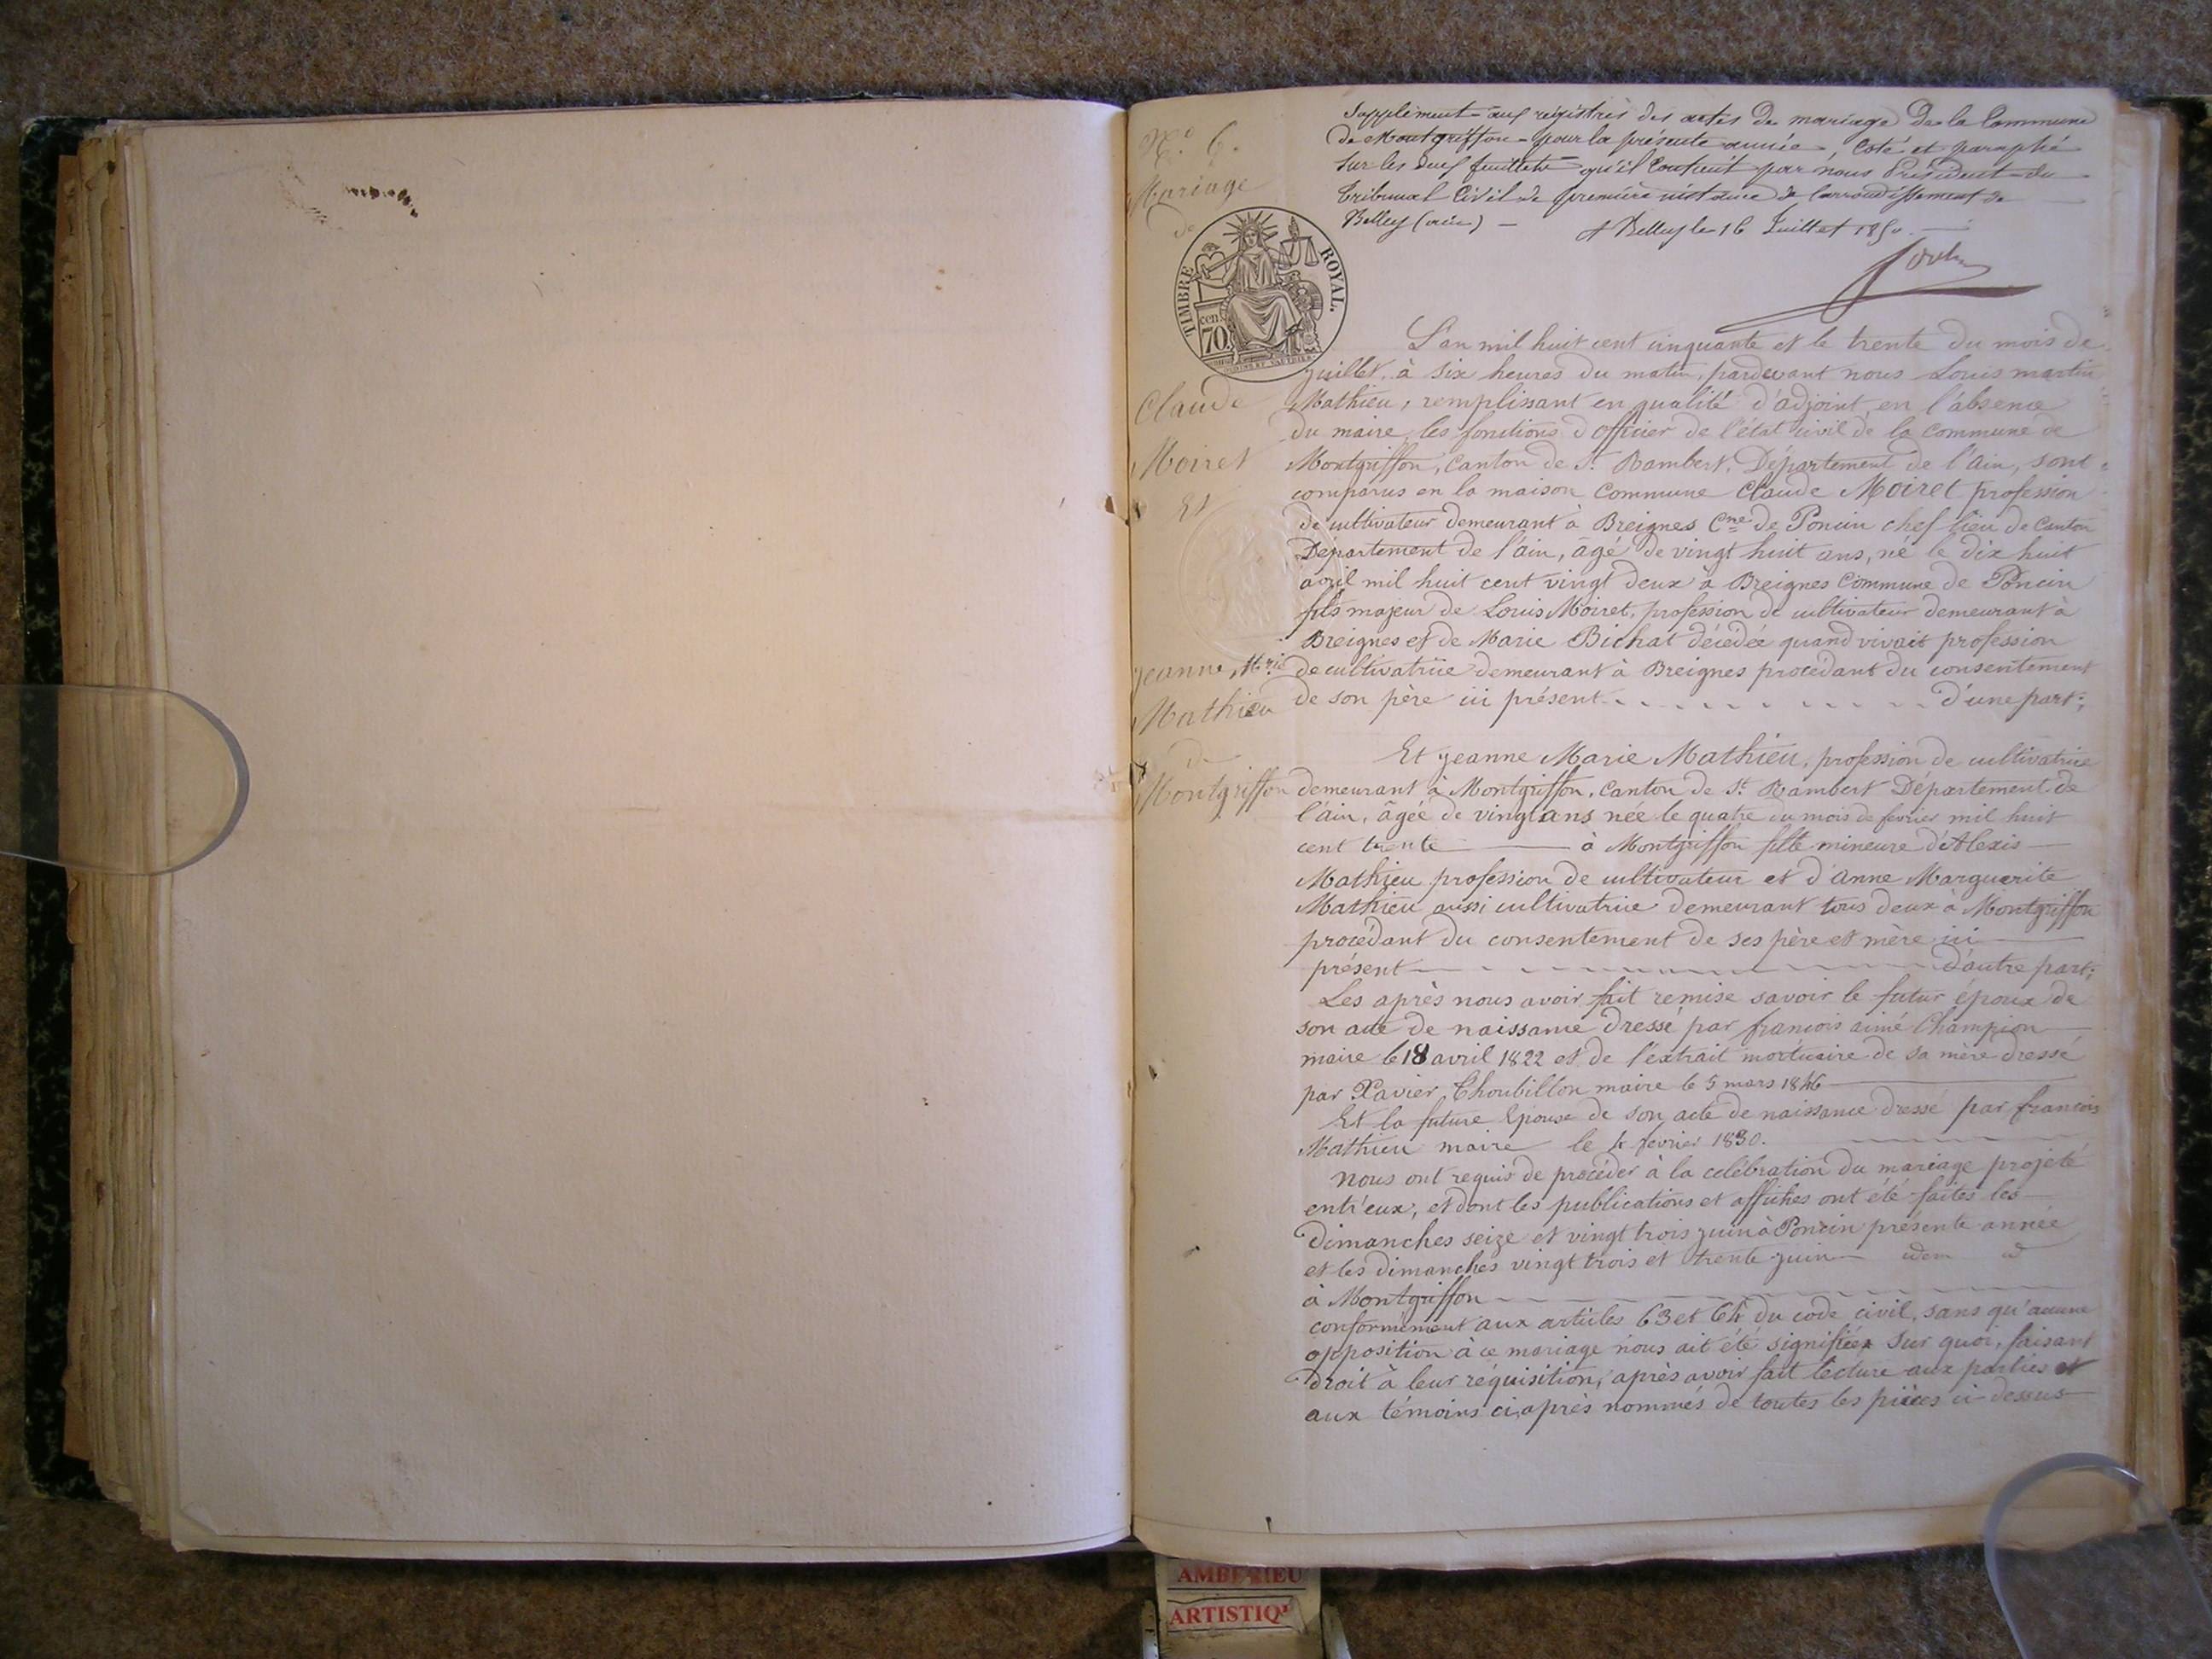 Supplément aux régistres des actes de mariage de la Commune
de Montgriffon pour la présente année, Coté et paraphé
sur les deux feuillets qu'il Contient par nous Président du
tribunal Civil de première instance de l'arrondissement de
Belley (ain) — A Belley le 16 Juillet 1850.
N.º 6.
Mariage
de
TIMBRE ROYAL.
cen.
70
Claude
Moiret
Et
Jeanne M.rie
Mathieu
de
Montgriffon
L'an mil huit cent cinquante et le trente du mois de
juillet, à six heures du matin, pardevant nous Louis martin
Mathieu, remplissant en qualité d'adjoint en l'absence
du maire, les fonctions d'officier de l'état civil de la commune de
Montgriffon, Canton de St. Rambert, Département de l'Ain, sont
comparus en la maison Commune Claude Moiret profession
de cultivateur demeurant à Breignes Cne de Poncin chef lieu de Canton
Département de l'ain, âgé de vingt huit ans, né le dix huit
avril mil huit cent vingt deux à Breignes Commune de Poncin
fils majeur de Louis Moiret, profession de cultivateur demeurant à
Breignes et de Marie Bichat décédée quand vivait profession
de cultivatrice demeurant à Breignes procédant du consentement
de son père ici présent d'une part;
Et Jeanne Marie Mathieu, profession de cultivatrice
demeurant à Montgriffon, Canton de St. Rambert Département de
l'ain, âgée de vingt ans née le quatre du mois de fevrier mil huit
cent trente — à Montgriffon fille mineure d'Alexis
Mathieu profession de cultivateur et d'anne Marguerite
Mathieu aussi cultivatrice demeurant tous deux à Montgriffon
procédant du consentement de ses père et mère ici
présent d'autre part;
Les après nous avoir fait remise savoir le futur époux de
son acte de naissance dressé par francois aimé Champion
maire le 18 avril 1822 et de l'extrait mortuaire de sa mère dressé
par Xavier Thoubillon maire le 5 mars 1846
Et la future Epouse de son acte de naissance dressé par francois
Mathieu maire le 4 fevrier 1830.
Nous ont requis de procéder à la celebration du mariage projeté
entr'eux, et dont les publications et affiches ont été faites les
Dimanches seize et vingt trois juin à Poncin présente année
et les dimanches vingt trois et trente juin — idem
à Montgriffon
conformément aux articles 63 et 64 du code civil, sans qu'aucune
opposition à ce mariage nous ait été signifiée sur quoi, faisant
droit à leur réquisition, après avoir fait lecture aux parties et
aux témoins ci-après nommés de toutes les pièces ci-dessus
AMBERIEU
ARTISTIQ